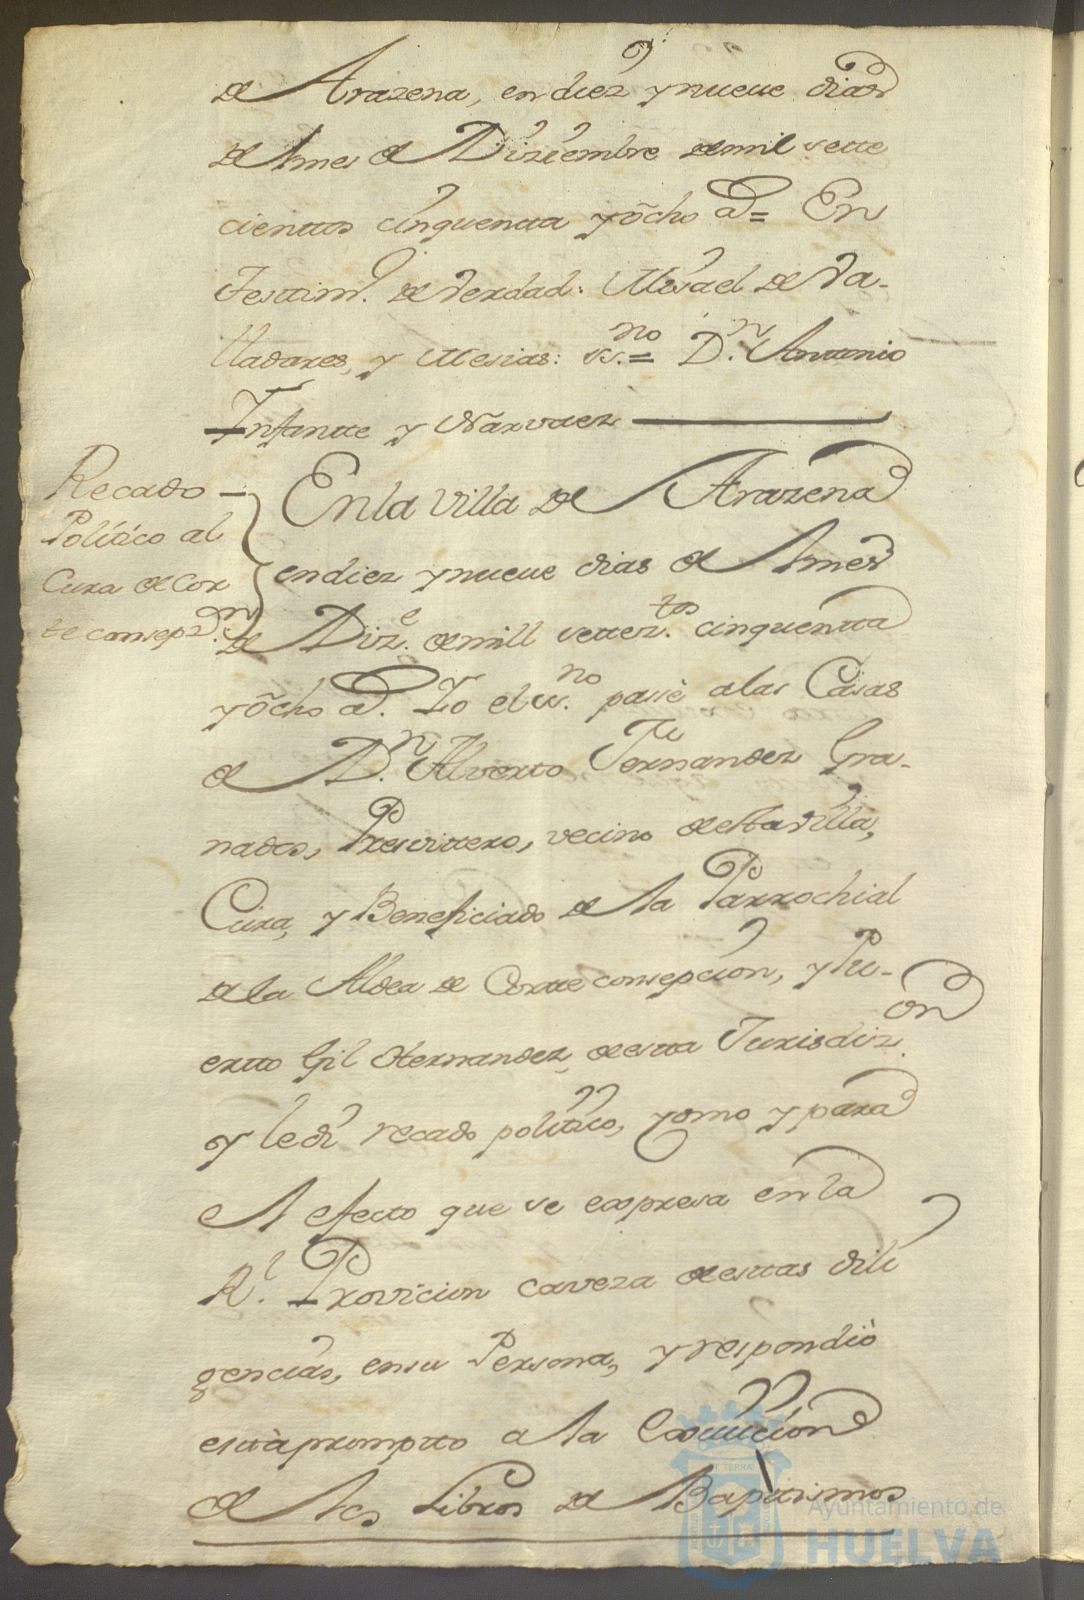 de Arazena, en diez y nueue dias
del mes de Diziembre de mil sette
cienttos cinquentta y ôcho a.s = En
Testtim.o de Verdad: Misael de Va-
lladares, y Mesias: ss.no = D.n Antonio
Infantte y Narvaez
Recado
Politico al
Cura de Cor
te consepz.n
En la Villa de Arazena
en diez y nueue dias del mes
de Diz.e de mill settez.tos cinquentta
y ôcho a.s Yo el ss.no passè a las Casas
de D.n Alverto Fernandez Gra-
nados, Presvittero, vecino de estta Villa,
Cura, y Beneficiado de la Parrochial
de la Aldea de Cortte consepcion, y Pu-
ertto Gil Hernandez, de estta Jurisdiz.on
y le di recado politico, como y para
el efecto que se expresa en la
R.l Provicion caveza de esttas dili
gencias, en su Persona, y respondiò
està promptto a la Exsivicion
de los Libros de Bapttismos
Ayuntamiento de
HUELVA